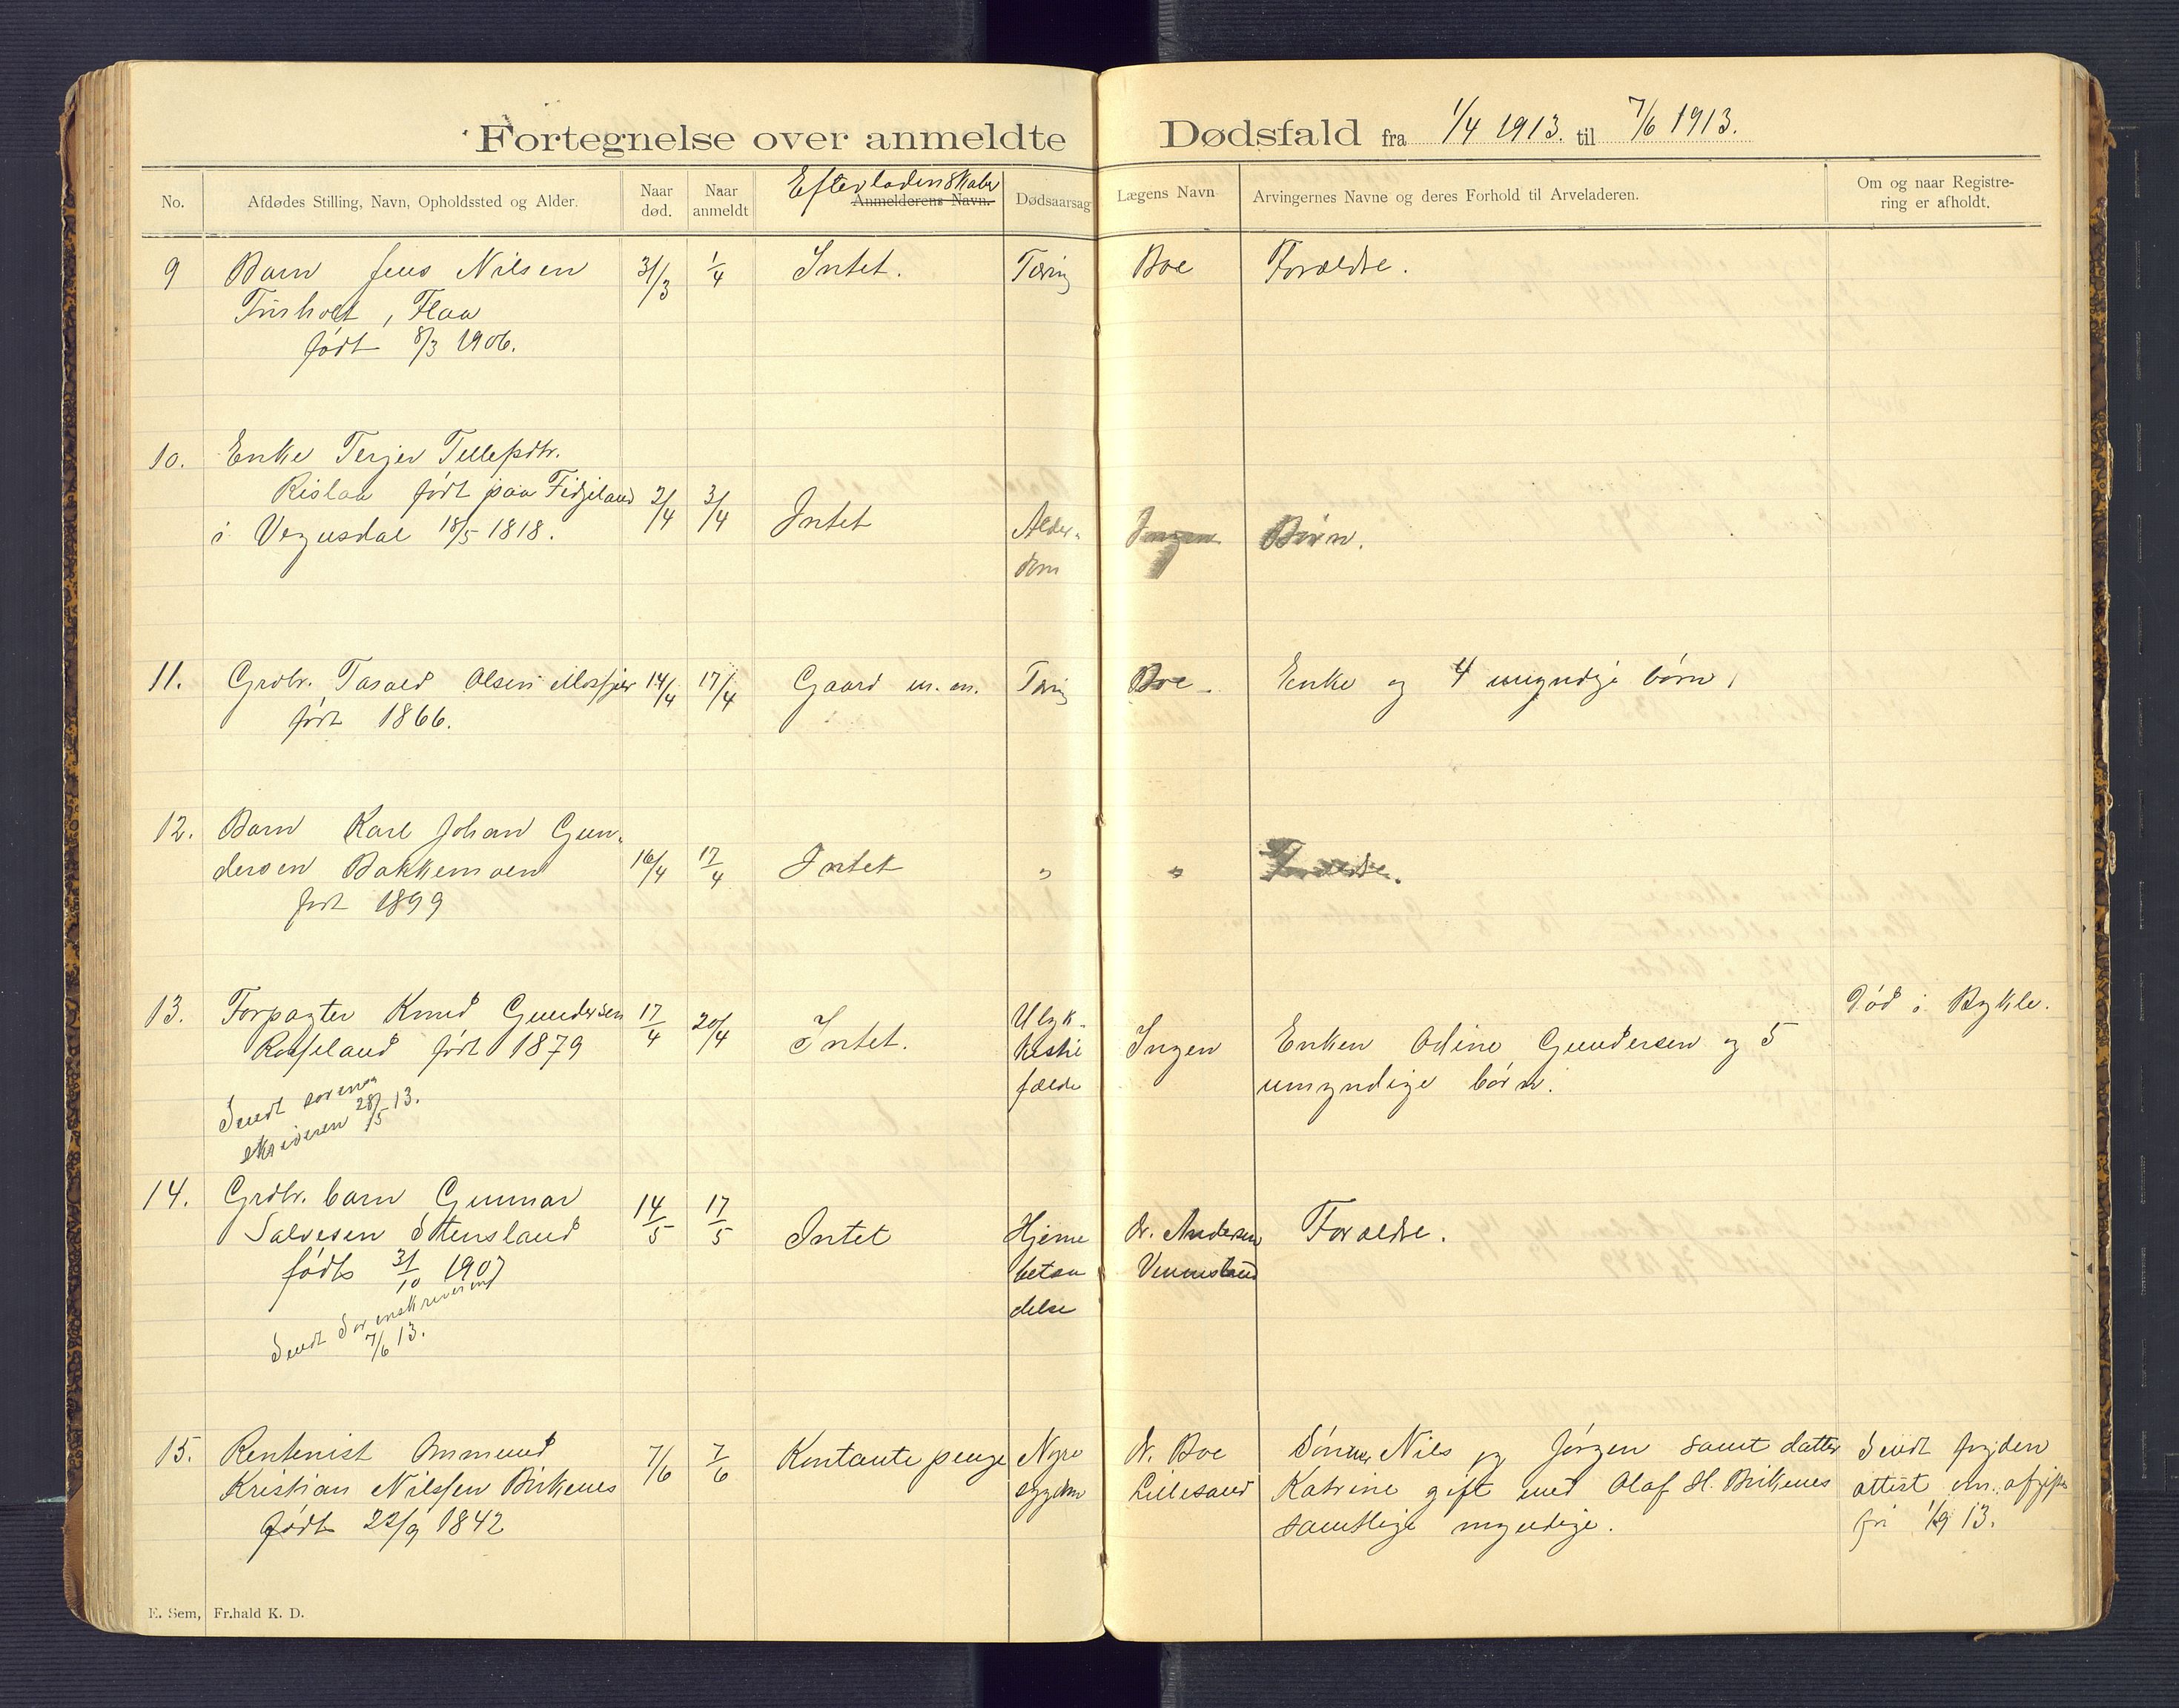 Fortegnelse over anmeldte Dødsfald fra 1/4 1913. til 7/6 1913.
No. Afdødes Stilling, Navn, Opholdssted og Alder. Naar død. Naar anmeldt Efterladenskaber Anmelderens Navn. Dødsaarsag Lægens Navn Arvingernes Navne og deres Forhold til Arveladeren. Om og naar Registrering er afholdt.
9 Barn Jens Nilsen 31/3 1/4 Intet. Tæring Boe Forældre.
, Flaa
født 8/3 1906.
10. Enke Terjer Tellefsdtr.
Rislaa født paa Fidjeland 2/4 3/4 Intet Alder- Ingen Børn.
i Vegusdal 18/5 1818. dom
11. Grdbr. Tarald Olsen Mosfjær 14/4 17/4 Gaard m.m. Tæring Boe. Enke og 4 umyndige børn,
født 1866.
12. Barn Karl Johan Gun-
dersen Bakkemoen 16/4 17/4 Intet " " Forældre.
født 1899
13. Forpagter Knud Gundersen 17/4 20/4 Intet. Ulyk- Død i Bykle.
Røiseland født 1879 kestil Ingen Enken Oline Gundersen og 5
fælde umyndige børn.
Sendt soren
skriveren 28/5 13.
14. Grdbr. barn Gunnar 14/5 17/5
Salvesen Stensland Intet Hjerne Dr. Andersen Forældre.
født 31/10 1907 betæn Vennesland
delse
Sendt Sorenskriveren
7/6 13.
15. Rentenist Ommund 7/6 7/6 Kontante penge Nyre Dr. Boe Sönner Nils og Jørgen samt datter Sendt fogden
Kristian Nilssen Birkenes sygdom Lillesand Katrine gift med Olaf H. Birkenes attest om afgifts
født 22/9 1842 samtlige myndige. fri 1/9 13.
E. Sem, Fr.hald K. D.